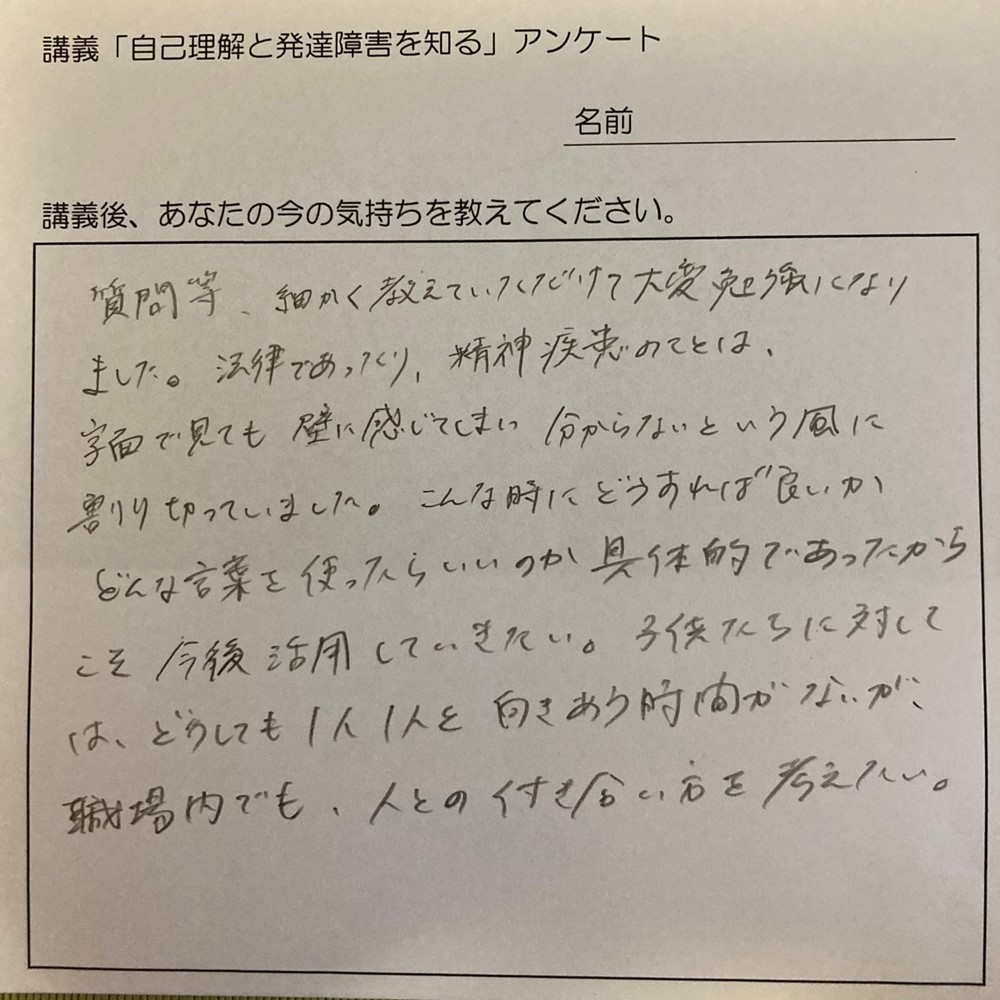 講義「自己理解と発達障害を知る」アンケート
名前
講義後、あなたの今の気持ちを教えてください。
質問等、細かく教えていただけて大変勉強になり
ました。法律であったり、精神疾患のことは、
字面で見ても壁に感じてしまい分からないという風に
割り切っていました。こんな時にどうすれば良いか
どんな言葉を使ったらいいのか具体的であったから
こそ今後活用していきたい。子供たちに対して
は、どうしても1人1人と向きあう時間がないが、
職場内でも、人との付き合い方を考えたい。